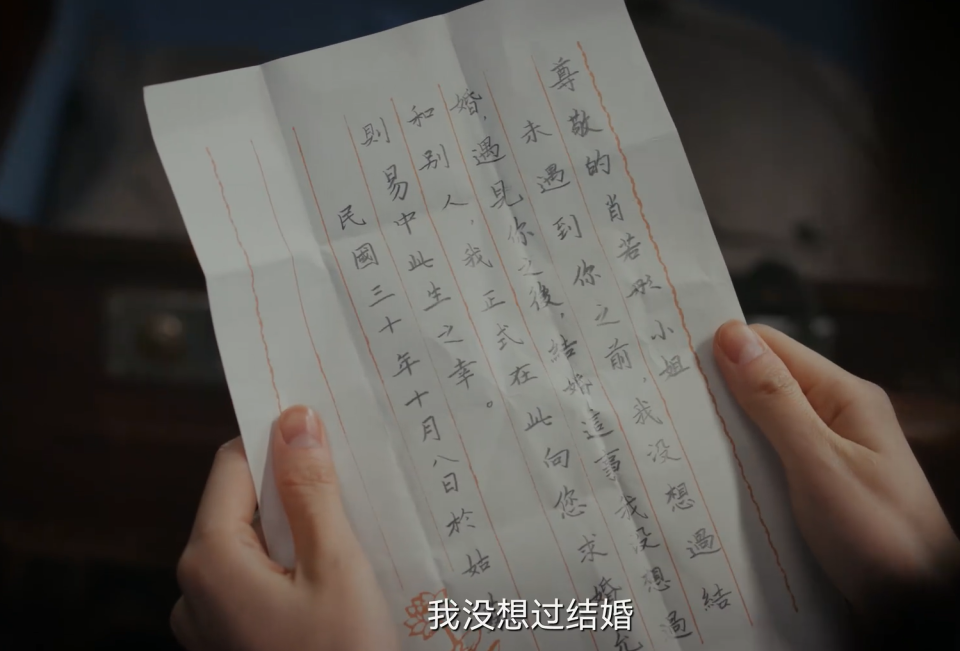 尊敬的肖若彤小姐
未遇到你之前，我没想過結
婚，遇見你之後，結婚這事我没想過
和别人，我正式在此向您求婚
則易中此生之幸。
民國三十年十月八日於姑
我没想过结婚